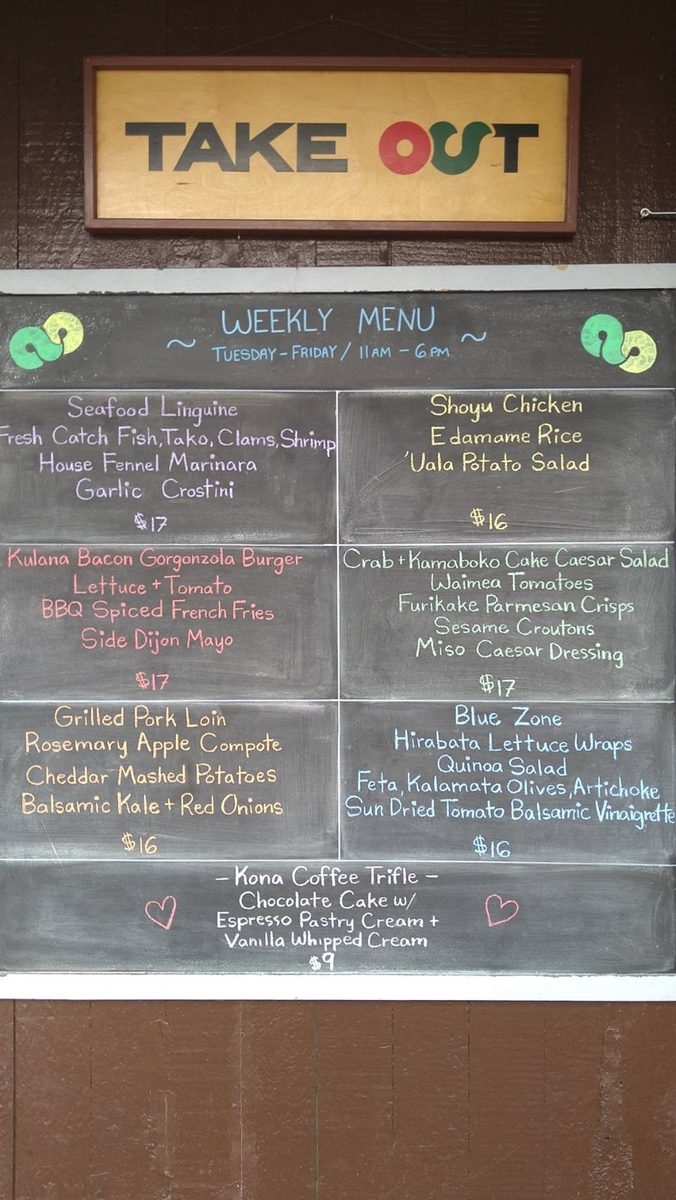 TAKE OUT
~ WEEKLY MENU ~
TUESDAY - FRIDAY / 11AM - 6PM
Seafood Linguine
Fresh Catch Fish, Tako, Clams, Shrimp
House Fennel Marinara
Garlic Crostini
$17
Shoyu Chicken
Edamame Rice
'Uala Potato Salad
$16
Kulana Bacon Gorgonzola Burger
Lettuce + Tomato
BBQ Spiced French Fries
Side Dijon Mayo
$17
Crab + Kamaboko Cake Caesar Salad
Waimea Tomatoes
Furikake Parmesan Crisps
Sesame Croutons
Miso Caesar Dressing
$17
Grilled Pork Loin
Rosemary Apple Compote
Cheddar Mashed Potatoes
Balsamic Kale + Red Onions
$16
Blue Zone
Hirabata Lettuce Wraps
Quinoa Salad
Feta, Kalamata Olives, Artichoke
Sun Dried Tomato Balsamic Vinaigrette
$16
- Kona Coffee Trifle -
Chocolate Cake w/
Espresso Pastry Cream +
Vanilla Whipped Cream
$9